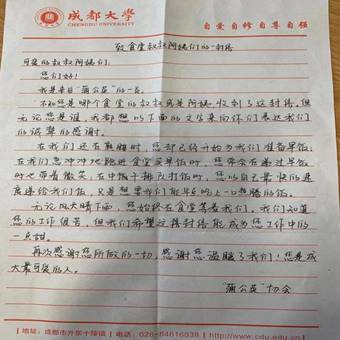 成都大学
CHENGDU UNIVERSITY
自爱自修自尊自强
致食堂叔叔阿姨们的一封信
可爱的叔叔阿姨们:
您们好!
我是来自“蒲公英”的一员。
不知您是哪个食堂的叔叔或是阿姨收到了这封信。但
无论您是谁,我都想以下面的文字来向你们表达我们
的诚挚的感谢。
在我们还在熟睡时,您却已经开始为我们准备早饭;
在我们急冲冲地跑进食堂买早饭时,您
时也带着微笑;在中午下课打饭时,您以自己最快的速
度递给我们饭,只是想要我们能早点吃上一口热腾的饭。
无论风天晴下雨,您始终在食堂等着我们。我们知道
您的工作很苦,但我们希望这封信能成为您工作中的
一点甜。
再次感谢您所做的一切,感谢您温暖了我们!您是成
大最可爱的人。
“蒲公英”协会
地址:成都市外东十陵镇 电话:028-84616038 http://www.cdu.edu.cn